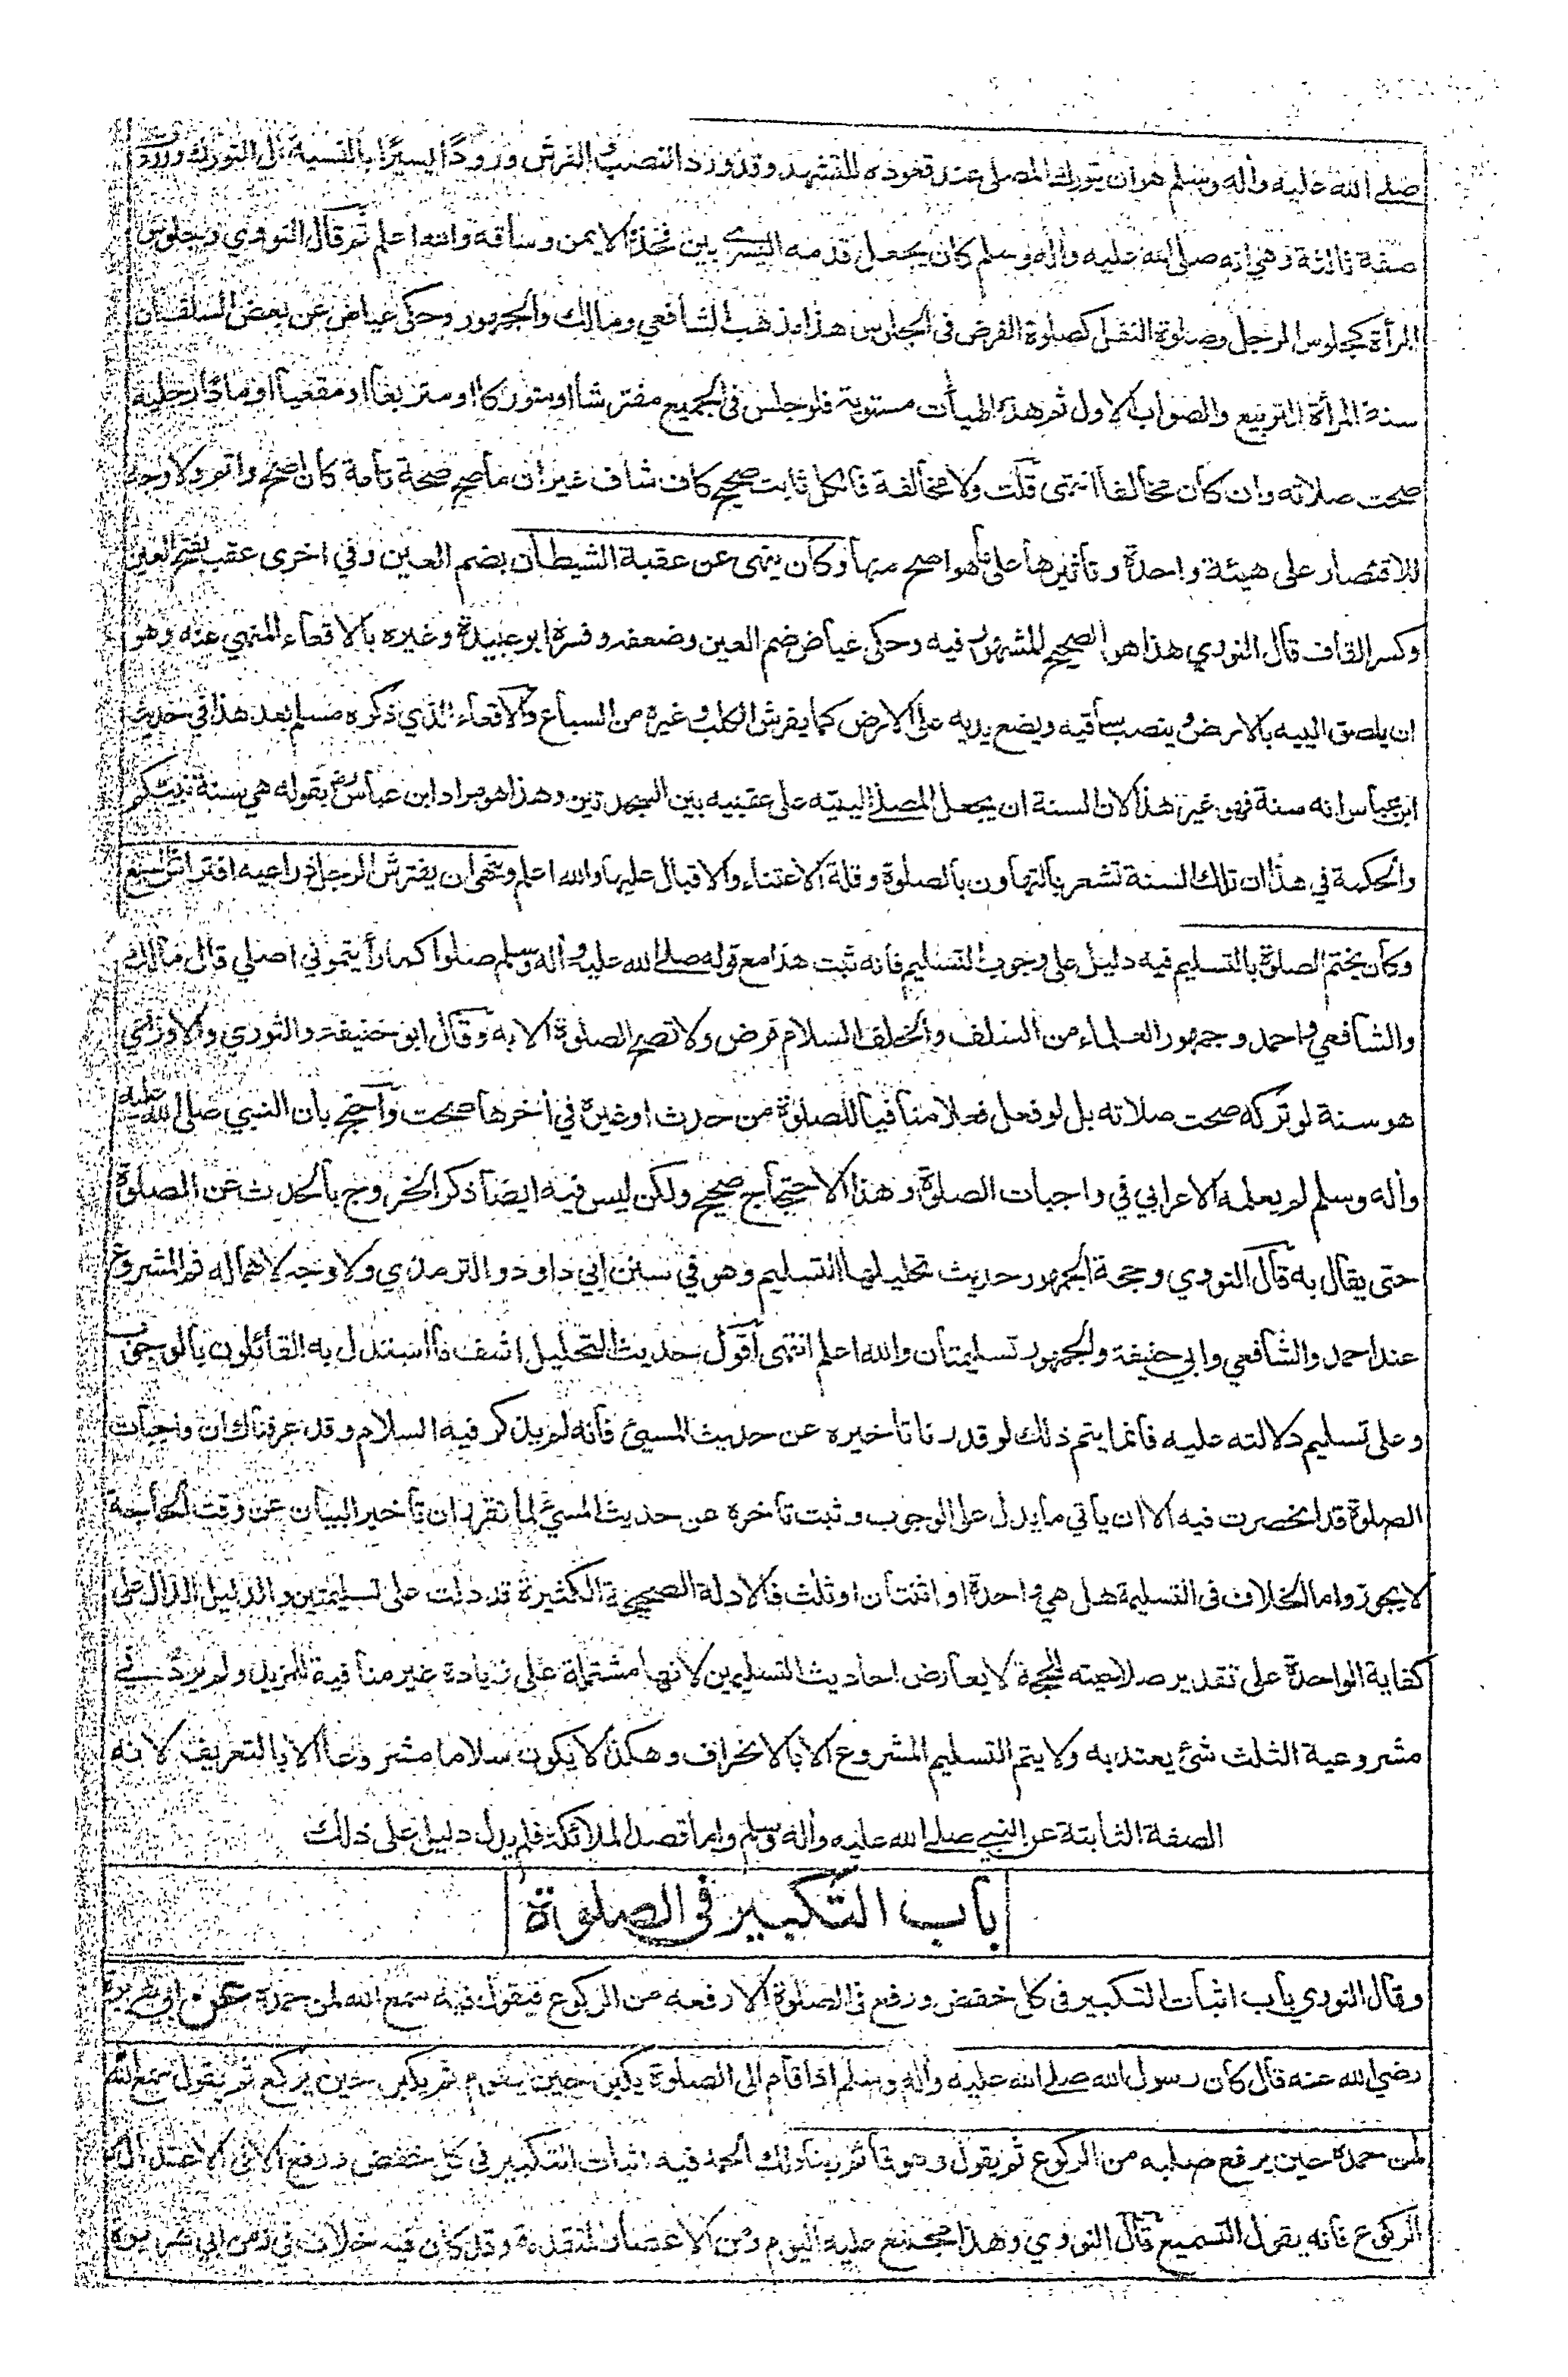 صلے الله عليه وأله وسلم هو أن يتورك المصلى عند قعوده للتشهد وقد ورد النصب الفرش ورودًا يسيرًا بالنسبة الى التورك وورد
صفة ثالثة وهي انه صلى الله عليه وأله وسلم كان يجعل قدمه اليسرے بين فخذه الايمن وساقه والله اعلم ثم قال النووي وجلوس
المرأة كجلوس الرجل وصلوة النفل كصلوة الفرض فى الجلوس هذا مذهب الشافعي ومالك والجمهور وحكى عياض عن بعض السلف ان
سنة المرأة التربيع والصواب الاول ثم هذه الهيأت مستوية فلو جلس فى الجميع مفترشا او متوركا او متربعا او مقعيا او مادًا رجليه
صحت صلاته وان كان مخالفا انتهى قلت ولا مخالفة فالكل ثابت صحيح كاف شاف غير ان ما صح صحة تامة كان اصح واتم ولا وجه
للاقتصار على هيئة واحدة وتأثيرها على ما هو اصح منها وكان ينهى عن عقبة الشيطان بضم العين وفي اخرى عقب بفتح العين
وكسر القاف قال النووي هذا هو الصحيح المشهور فيه وحكى عياض ضم العين وضعفه وفسره ابو عبيدة وغيره بالاقعاء المنهي عنه وهو
ان يلصق الييه بالارض وينصب ساقيه ويضع يديه على الارض كما يفرش الكلب وغيره من السباع والاقعاء الذي ذكره مسلم بعد هذا في حديث
ابن عباس انه سنة فهو غير هذا لان السنة ان يجعل المصلے اليتيه على عقبيه بين السجدتين وهذا هو مراد ابن عباس رض بقوله هي سنة نبيكم
والحكمة في هذا ان تلك السنة تشعر بالتهاون بالصلوة وقلة الاعتناء والاقبال عليها والله اعلم وينهى ان يفترش الرجل ذراعيه افتراش السبع
وكان يختم الصلوة بالتسليم فيه دليل على وجوب التسليم فانه ثبت هذا مع قوله صلے الله عليه وأله وسلم صلوا كما رأيتموني اصلي قال مالك
والشافعي واحمد وجمهور العلماء من السلف والخلف السلام فرض ولا تصح الصلوة الا به وقال ابو حنيفة والثوري والاوزاعي
هو سنة لو تركه صحت صلاته بل لو فعل فعلا منافيا للصلوة من حدث او غيره في أخرها صحت واحتج بان النبي صلى الله عليه
وأله وسلم لم يعلمه الاعرابي في واجبات الصلوة وهذا الاحتجاج صحيح ولكن ليس فيه ايضا ذكر الخروج بالحديث عن الصلوة
حتى يقال به قال النووي وحجة الجمهور حديث تحليلها التسليم وهو في سنن ابي داود والترمذي ولا وجه لاهماله ثم المشروع
عند احمد والشافعي وابي حنيفة والجمهور تسليمتان والله اعلم انتهى أقول حديث التحليل اشف ما استدل به القائلون بالوجوب
وعلى تسليم دلالته عليه فانما يتم ذلك لو قدرنا تأخيره عن حديث المسيئ فانه لم يذكر فيه السلام وقد عرفناك ان واجبات
الصلوة قد انحصرت فيه الا ان يأتي ما يدل على الوجوب وثبت تأخره عن حديث المسيئ لما تقرر ان تأخير البيان عن وقت الحاجة
لا يجوز واما الخلاف فى التسليمة هل هي واحدة او اثنتان او ثلث فالادلة الصحيحة الكثيرة قد دلت على تسليمتين والدليل الدال على
كفاية الواحدة على تقدير صلاحيته للحجة لا يعارض احاديث التسليمتين لانها مشتملة على زيادة غير منافية للمزيل ولم يرد في
مشروعية الثلث شئ يعتد به ولا يتم التسليم المشروع الا بالانحراف وهكذا لا يكون سلاما مشروعا الا بالتعريف لانه
الصفة الثابتة عن النبي صلے الله عليه وأله وسلم واما قصد الملائكة فلم يدل دليل على ذلك
باب التكبير فى الصلوة
وقال النووي باب اثبات التكبير فى كل خفض ورفع فى الصلوة الا رفعه من الركوع فيقول فيه سمع الله لمن حمده عن ابي هريرة
رضي الله عنه قال كان رسول الله صلے الله عليه وأله وسلم اذا قام الى الصلوة يكبر حين يقوم ثم يكبر حين يركع ثم يقول سمع الله
لمن حمده حين يرفع صلبه من الركوع ثم يقول وهو قائم ربنا ولك الحمد فيه اثبات التكبير فى كل خفض ورفع الا في الاعتدال من
الركوع فانه يقول التسميع قال النووي وهذا مجمع عليه اليوم ومن الاعصار المتقدمة وقد كان فيه خلاف في زمن ابي هريرة